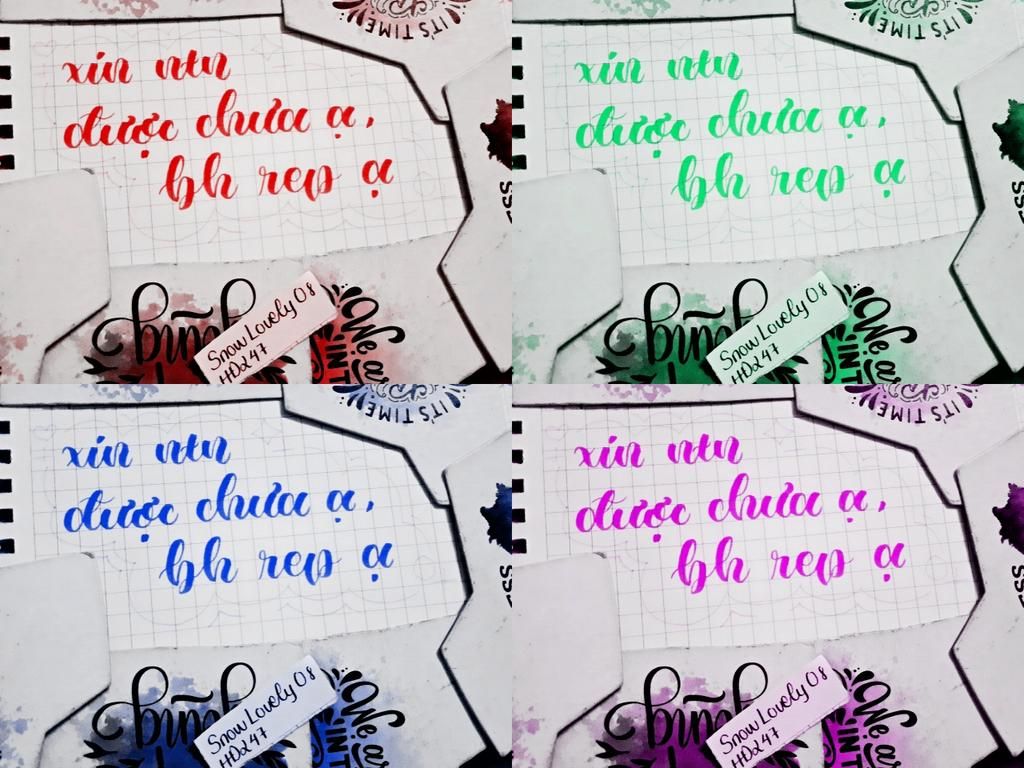 IT'S TIME
xin ntn
được chưa ạ,
bh rep ạ
Snow Lovely 08
HD247
We are
INT
IT'S TIME
xin ntn
được chưa ạ,
bh rep ạ
Snow Lovely 08
HD247
We are
INT
IT'S TIME
xin ntn
được chưa ạ,
bh rep ạ
Snow Lovely 08
HD247
We are
INT
IT'S TIME
xin ntn
được chưa ạ,
bh rep ạ
Snow Lovely 08
HD247
We are
INT